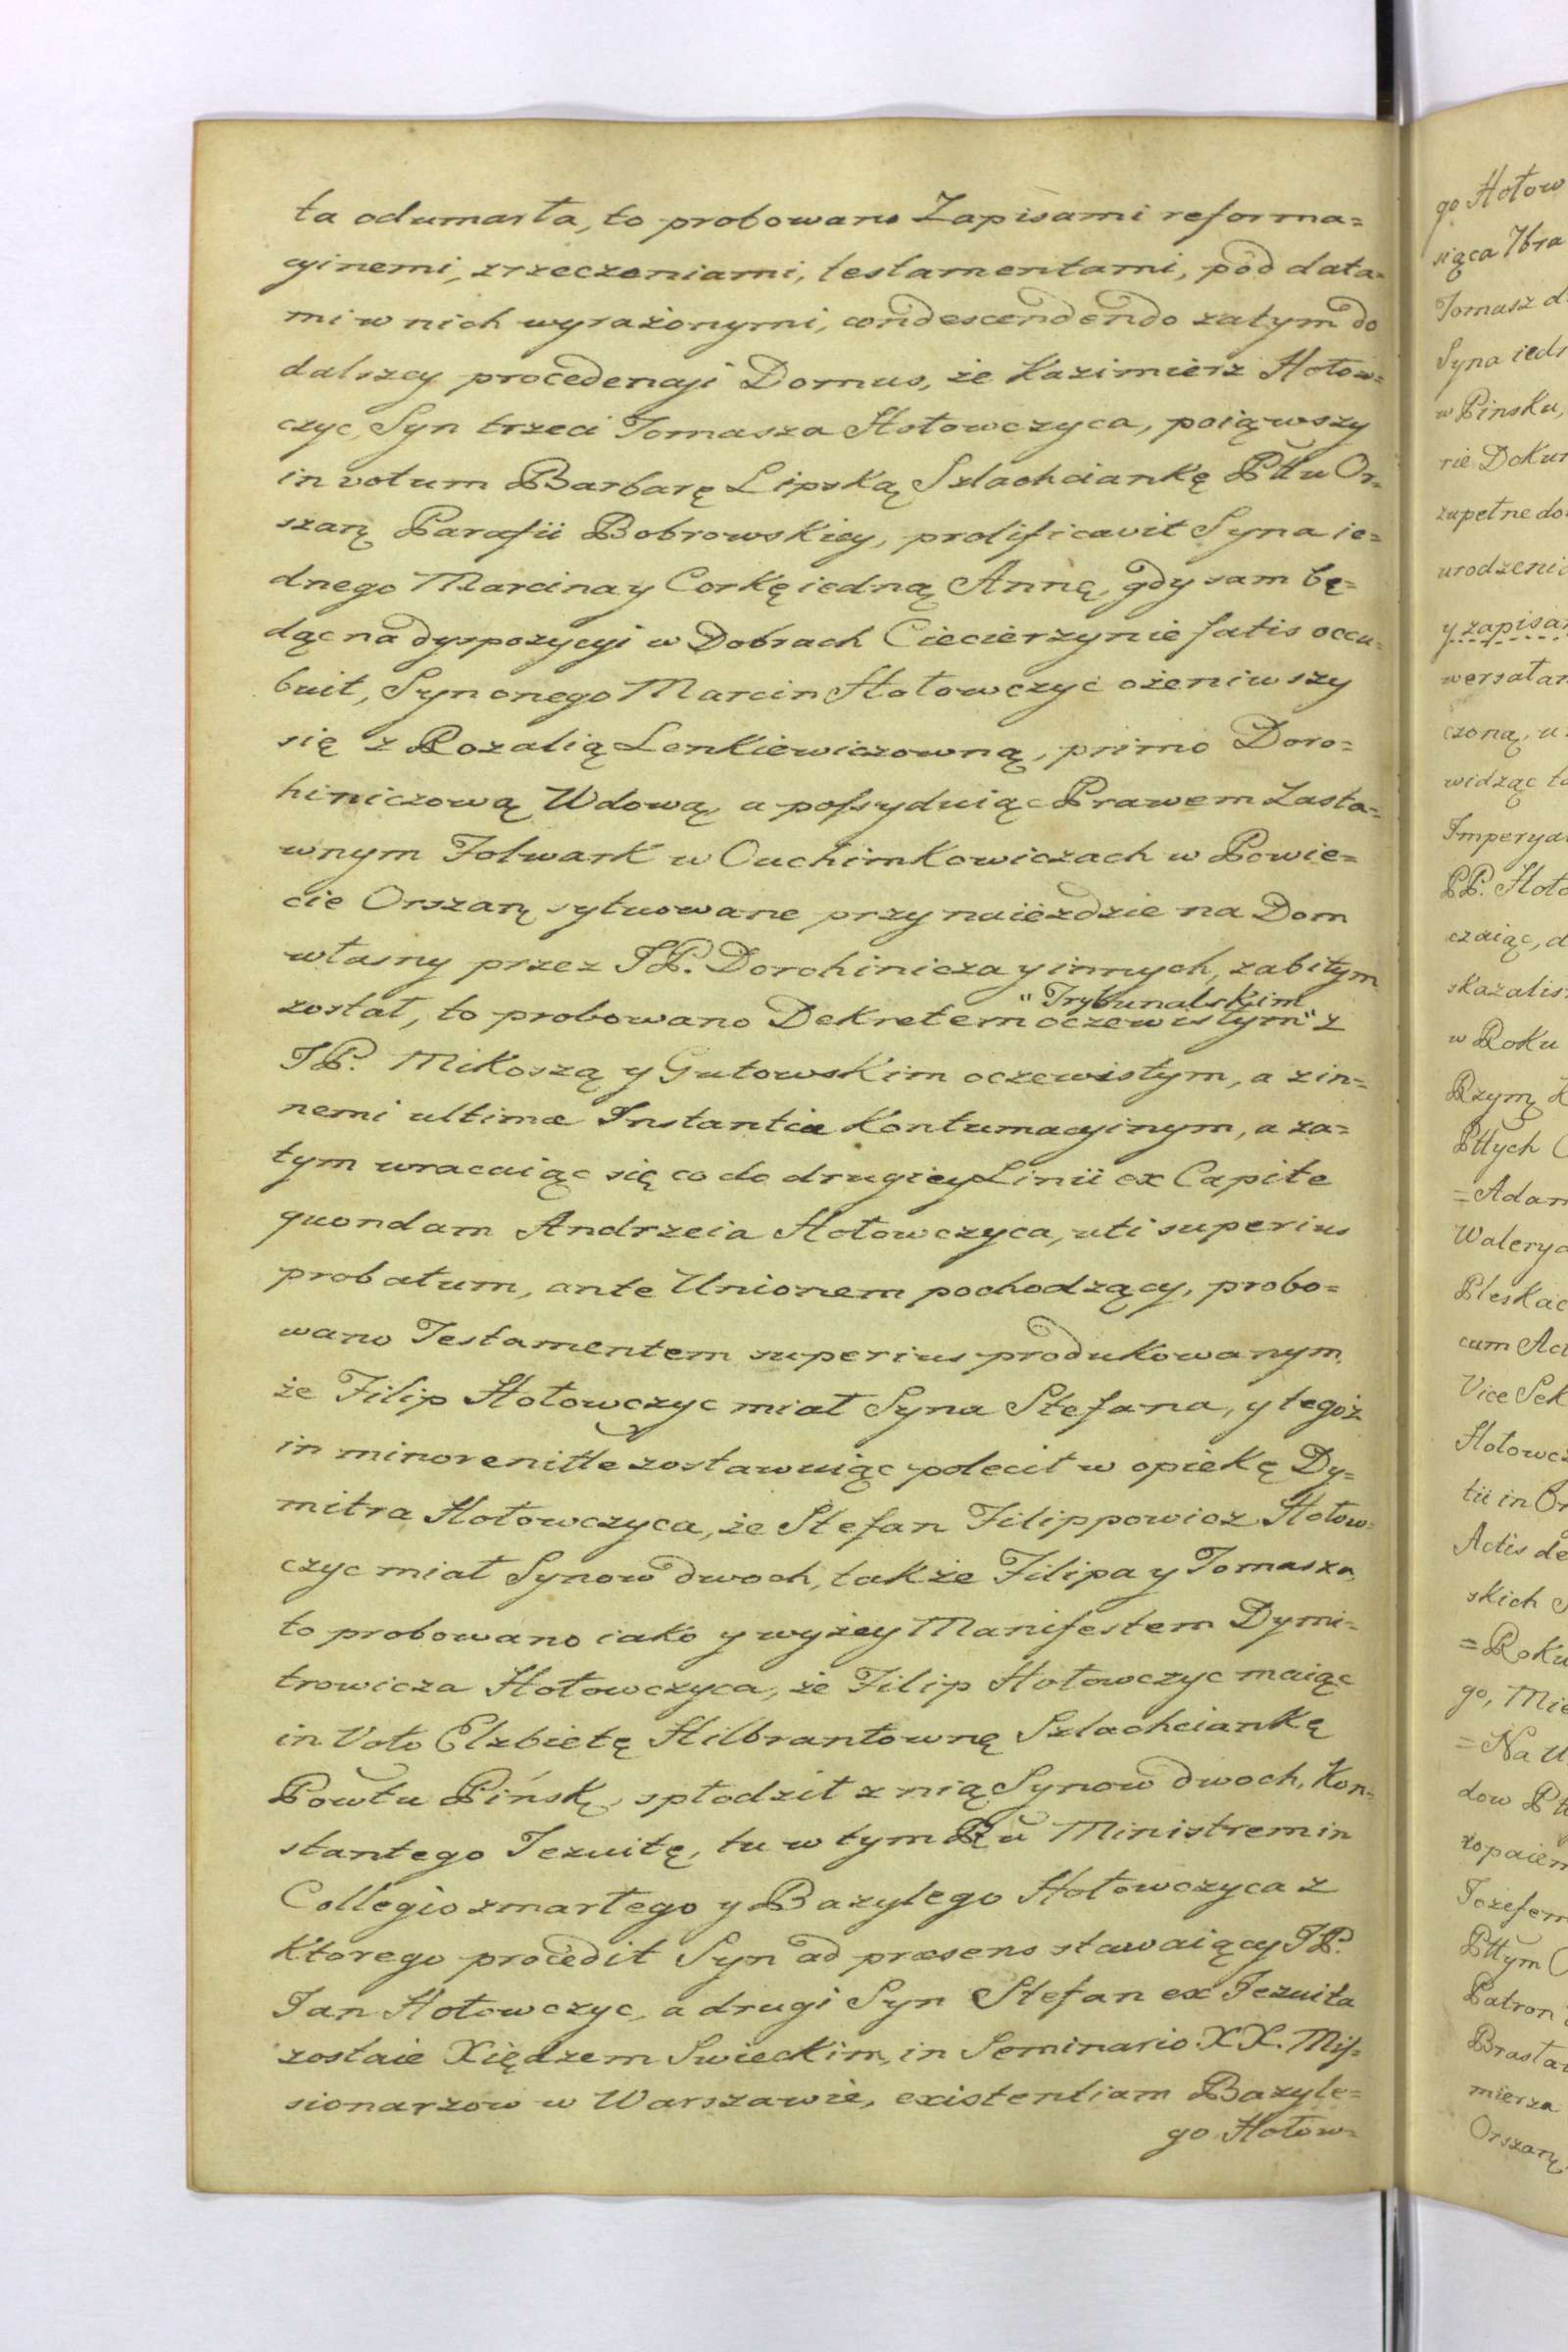 ta odumarła, to probowano Zapisami reforma=
cyinemi, zrzeczeniami, testamentami, pod data=
mi w nich wyrażonymi, condescendendo zatym do
dalszey procedencyi Domus, że Kazimierz Hołow=
czyc, Syn trzeci Tomasza Hołowczyca, poiąwszy
in votum Barbarę Lipską Szlachciankę Pttu Or=
szań Parafii Bobrowskiey, prolificavit Syna ie=
dnego Marcina y Corkę iedną Annę, gdy sam bę=
dąc na dyspozycyi w Dobrach Ciecierzynie fatis occu=
buit, Syn onego Marcin Hołowczyc ożeniwszy
się z Rozalią Lenkiewiczowną, primo Doro=
hiniczową Wdową, a possyduiąc Prawem Zasta=
wnym Folwark w Cuchimkowiczach w Powie=
cie Orszań sytuowane przy naiezdzie na Dom
własny przez JP. Dorohinicza y innych, zabitym
został, to probowano Dekretem oczewistym" z
"Trybunalskim
JP. Mikoszą y Gutowskim oczewistym, a z in=
nemi ultimæ Instantiæ Kontumacyinym, a za=
tym wracaiąc się co do drugiey Linii ex Capite
quondam Andrzeia Hołowczyca, uti superius
probatum, ante Unionem pochodzący, probo=
wano Testamentem superius produkowanym,
że Filip Hołowczyc miał Syna Stefana, y tegoż
in minorenitte zostawuiąc polecił w opiekę Dy=
mitra Hołowczyca, że Stefan Filippowicz Hołow=
czyc miał Synow dwoch, także Filipa y Tomasza,
to probowano iako y wyżey Manifestem Dymi=
trowicza Hołowczyca, że Filip Hołowczyc maiąc
in Voto Elzbietę Hilbrantownę Szlachciankę
Powtu Pińsk, spłodził z nią Synow dwoch, Kon=
stantego Jezuitę, tu w tym Ru Ministrem in
Collegio zmarłego y Bazylego Hołowczyca z
Ktorego procedit Syn ad præsens stawaiący JP.
Jan Hołowczyc, a drugi Syn Stefan ex Jezuita
zostaie Xiędzem Swieckim, in Seminario XX. Mis=
sionarzow w Warszawie, existentiam Bazyle=
go Hołow=
go Hołow
siąca 7bra
Tomasz d
Syna iedn
w Pinsku,
rie Dokum
zupełne do
urodzenie
y zapisan
wersatan
czoną, u
widząc to
Imperya
PP. Hoło
czaiąc, d
skazalis
w Roku
Rzym K
Pttych O
=Adam
Walerya
Pleskac
cum Act
Vice Sek
Hołowcz
tii in Or
Actis de
skich S
=Roku
go, Mie
=Na U
dow Pt
zopaiem
Jozefem
Pttym O
Patron
Brasta
mierza
Orszań